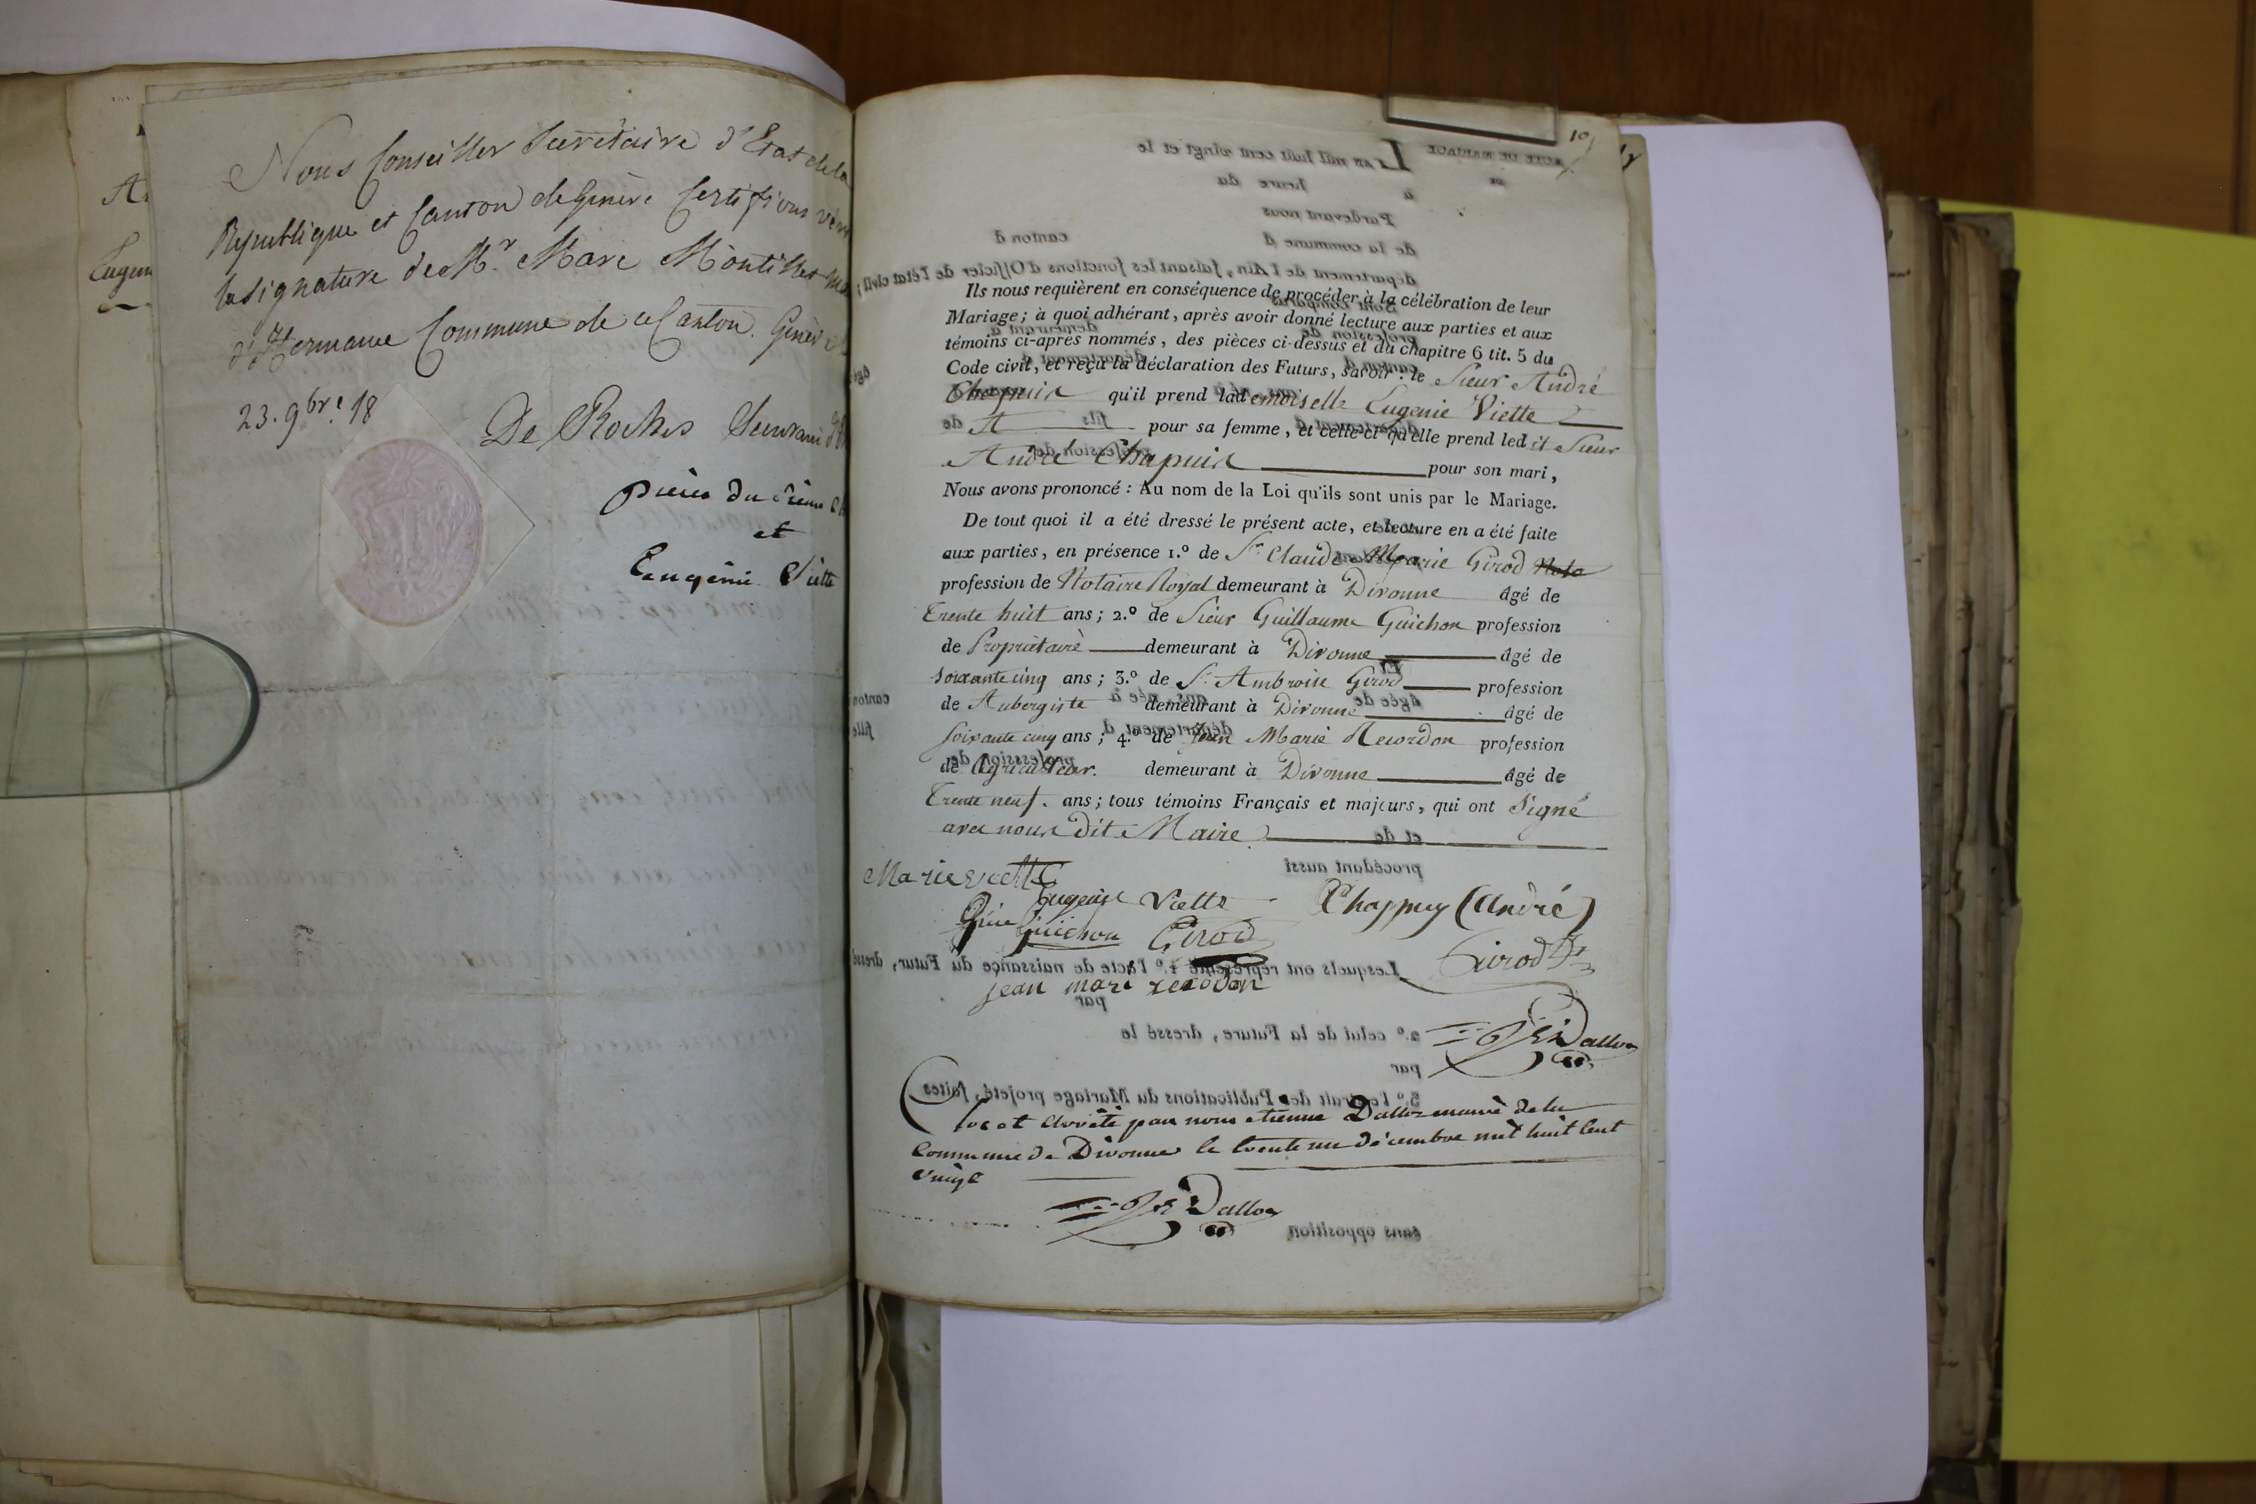 Nous Conseiller Secrétaire d'Etat de la
République et Canton de Genève Certifions
la signature de Mr. Marc Montillet
d'Hermance Commune de ce Canton. Genève
23. 9bre. 18
De Roches
pièces du
et
Eugénie Viette
10
Ils nous requièrent en conséquence de procéder à la célébration de leur
Mariage; à quoi adhérant, après avoir donné lecture aux parties et aux
témoins ci-après nommés, des pièces ci-dessus et du chapitre 6 tit. 5 du
Code civil, et reçu la déclaration des Futurs, savoir: le Sieur André
Chapuis qu'il prend lademoiselle Eugenie Viette
pour sa femme, et celle-ci qu'elle prend ledit Sieur
André Chapuis pour son mari,
Nous avons prononcé: Au nom de la Loi qu'ils sont unis par le Mariage.
De tout quoi il a été dressé le présent acte, et lecture en a été faite
aux parties, en présence 1.º de Sr. Claude Marie Girod
profession de Notaire Royal demeurant à Divonne âgé de
Trente huit ans; 2.º de Sieur Guillaume Guichon profession
de Propriétaire demeurant à Divonne âgé de
soixante cinq ans; 3.º de Sr. Ambroise Girod profession
de Aubergiste demeurant à Divonne âgé de
soixante cinq ans; 4.º de Jean Marie Recordon profession
de Agriculteur. demeurant à Divonne âgé de
Trente neuf. ans; tous témoins Français et majeurs, qui ont Signé
avec nous dit Maire
Marie viette
Eugenie Viette Chappuy (André)
Guichon Girod
Girod
jean mari recodon
Dalloz
Clos et Arrêté par nous etienne Dalloz maire de la
Commune de Divonne le trente un décembre mil huit cent
vingt
Dalloz